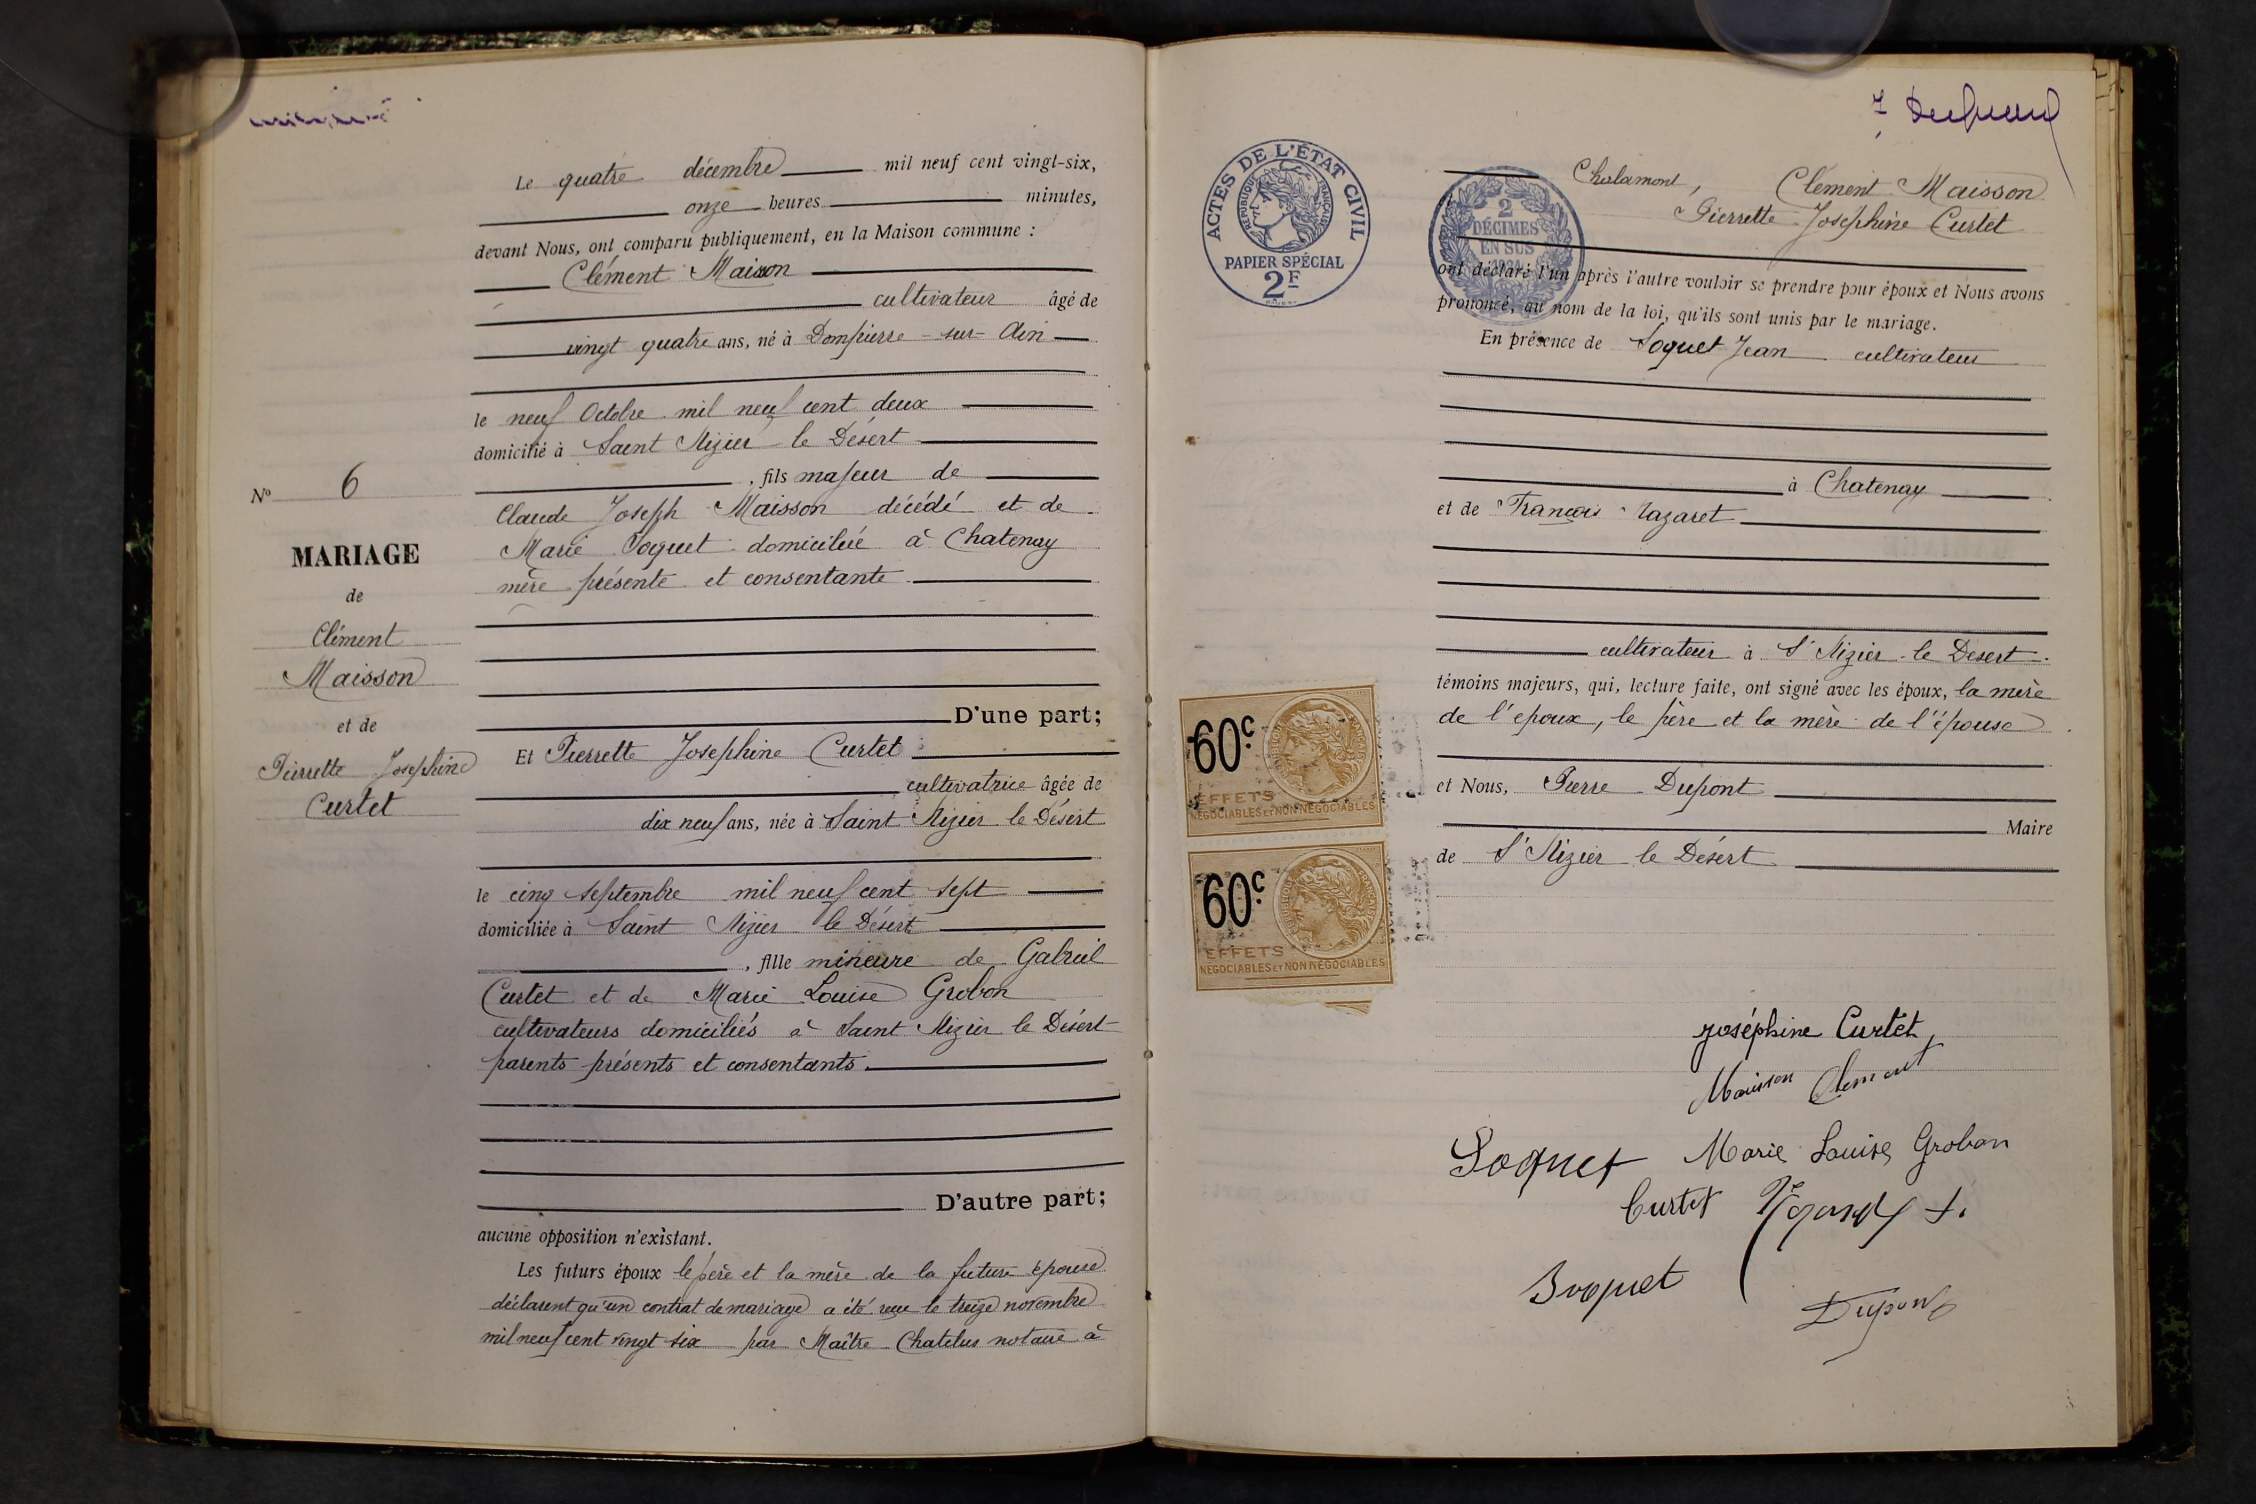 Le quatre décembre mil neuf cent vingt-six,
onze heures minutes,
devant Nous, ont comparu publiquement, en la Maison commune :
Clément Maisson
cultivateur âgé de
vingt quatre ans, né à Dompierre-sur-Ain
le neuf Octobre mil neuf cent deux
domicilié à Saint Nizier le Désert
, fils majeur de
Claude Joseph Maisson décédé et de
Marie Soquet domiciliée à Chatenay
mère présente et consentante
D'une part;
Nº 6
MARIAGE
de
Clément
Maisson
et de
Pierrette Josephine
Curtet
Et Pierrette Josephine Curtet
cultivatrice âgée de
dix neuf ans, née à Saint Nizier le Désert
le cinq septembre mil neuf cent sept
domiciliée à Saint Nizier le Désert
, fille mineure de Gabriel
Curtet et de Marie Louise Grobon
cultivateurs domiciliés à Saint Nizier le Désert
parents présents et consentants.
D'autre part;
aucune opposition n'existant.
Les futurs époux le père et la mère de la future épouse
déclarent qu'un contrat de mariage a été reçu le treize novembre
mil neuf cent vingt six par Maître Chatelus notaire à
ACTES DE L'ÉTAT CIVIL
RÉPUBLIQUE FRANÇAISE
PAPIER SPÉCIAL
2F
2
DÉCIMES
EN SUS
Chalamont, Clément Maisson
Pierrette Josephine Curtet
ont déclaré l'un après l'autre vouloir se prendre pour époux et Nous avons
prononcé, au nom de la loi, qu'ils sont unis par le mariage.
En présence de Soquet Jean cultivateur
à Chatenay
et de François Nazaret
cultivateur à St Nizier le Desert.
témoins majeurs, qui, lecture faite, ont signé avec les époux, la mère
de l'epoux, le père et la mère de l'épouse
et Nous, Pierre Dupont
Maire
de St Nizier le Désert
60c
EFFETS
NÉGOCIABLES ET NON NÉGOCIABLES
60c
EFFETS
NÉGOCIABLES ET NON NÉGOCIABLES
Joséphine Curtet
Maisson Clement
Soquet Marie Louise Grobon
Curtet
Soquet
Dupont